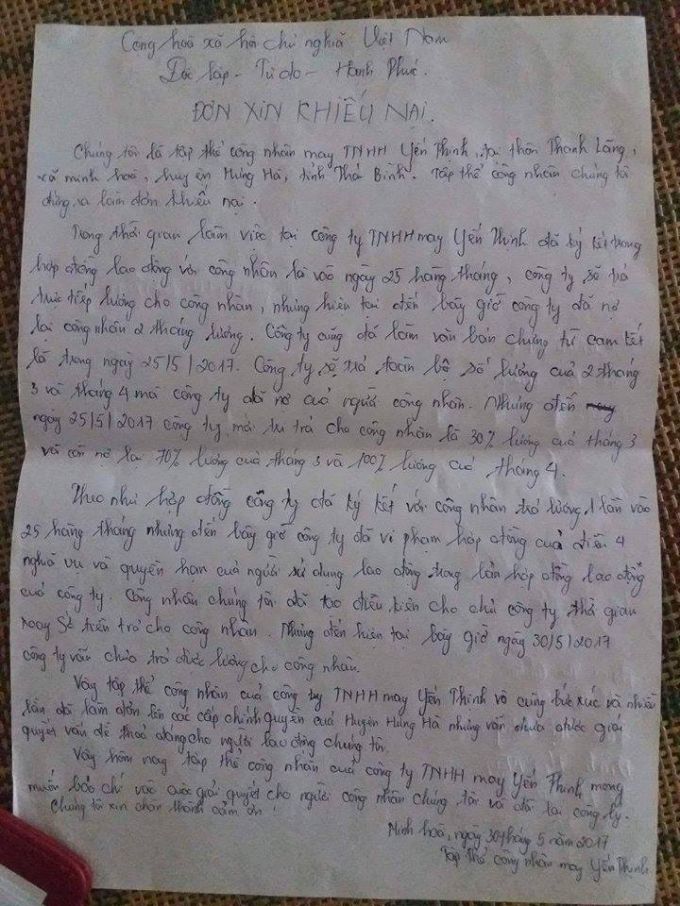 Cộng hoà xã hội chủ nghĩa Việt Nam
Độc lập - Tự do - Hạnh Phúc.
ĐƠN XIN KHIẾU NẠI.
Chúng tôi là tập thể công nhân may TNHH Yến Thịnh, tại thôn Thanh Lãng,
xã minh hoà, huyện Hưng Hà, tỉnh Thái Bình. Tập thể công nhân chúng tôi
đứng ra làm đơn khiếu nại.
Trong thời gian làm việc tại công ty TNHH may Yến Thịnh đã ký kết trong
hợp đồng lao động với công nhân là vào ngày 25 hàng tháng, công ty sẽ trả
trực tiếp lương cho công nhân, nhưng hiện tại đến bây giờ công ty đã nợ
lại công nhân 2 tháng lương. Công ty cũng đã làm văn bản chứng từ cam kết
là trong ngày 25/5/2017. Công ty sẽ trả toàn bộ số lương của 2 tháng
3 và tháng 4 mà công ty đã nợ của người công nhân. Nhưng đến
ngày 25/5/2017 công ty mới trả cho công nhân là 30% lương của tháng 3
và còn nợ lại 70% lương của tháng 3 và 100% lương của tháng 4.
Theo như hợp đồng công ty đã ký kết với công nhân trả lương 1 lần vào
25 hàng tháng nhưng đến bây giờ công ty đã vi phạm hợp đồng của điều 4
nghĩa vụ và quyền hạn của người sử dụng lao động trong bản hợp đồng lao động
của công ty. Công nhân chúng tôi đã tạo điều kiện cho chủ công ty thời gian
xoay sở tiền trả cho công nhân. Nhưng đến hiện tại bây giờ ngày 30/5/2017
công ty vẫn chưa trả được lương cho công nhân.
Vậy tập thể công nhân của công ty TNHH may Yến Thịnh vô cùng bức xúc và nhiều
lần đã làm đơn lên các cấp chính quyền của Huyện Hưng Hà nhưng vẫn chưa được giải
quyết vấn đề thoả đáng cho người lao động chúng tôi.
Vậy hôm nay tập thể công nhân của công ty TNHH may Yến Thịnh mong
muốn báo chí vào cuộc giải quyết cho người công nhân chúng tôi và đòi lại công lý.
Chúng tôi xin chân thành cảm ơn!
Minh hoà, ngày 30 tháng 5 năm 2017
Tập thể công nhân may Yến Thịnh